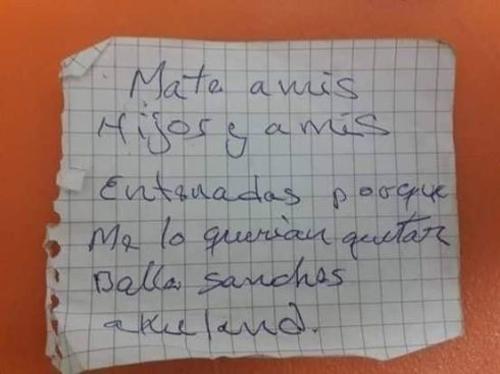 Mate a mis
Hijos y a mis
Entenadas porque
Me lo querian quetar
Balla sanchos
akuland.